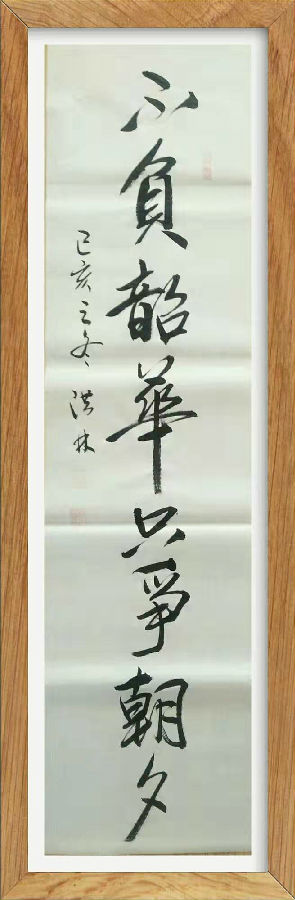 不負韶華只爭朝夕
己亥之冬洪林